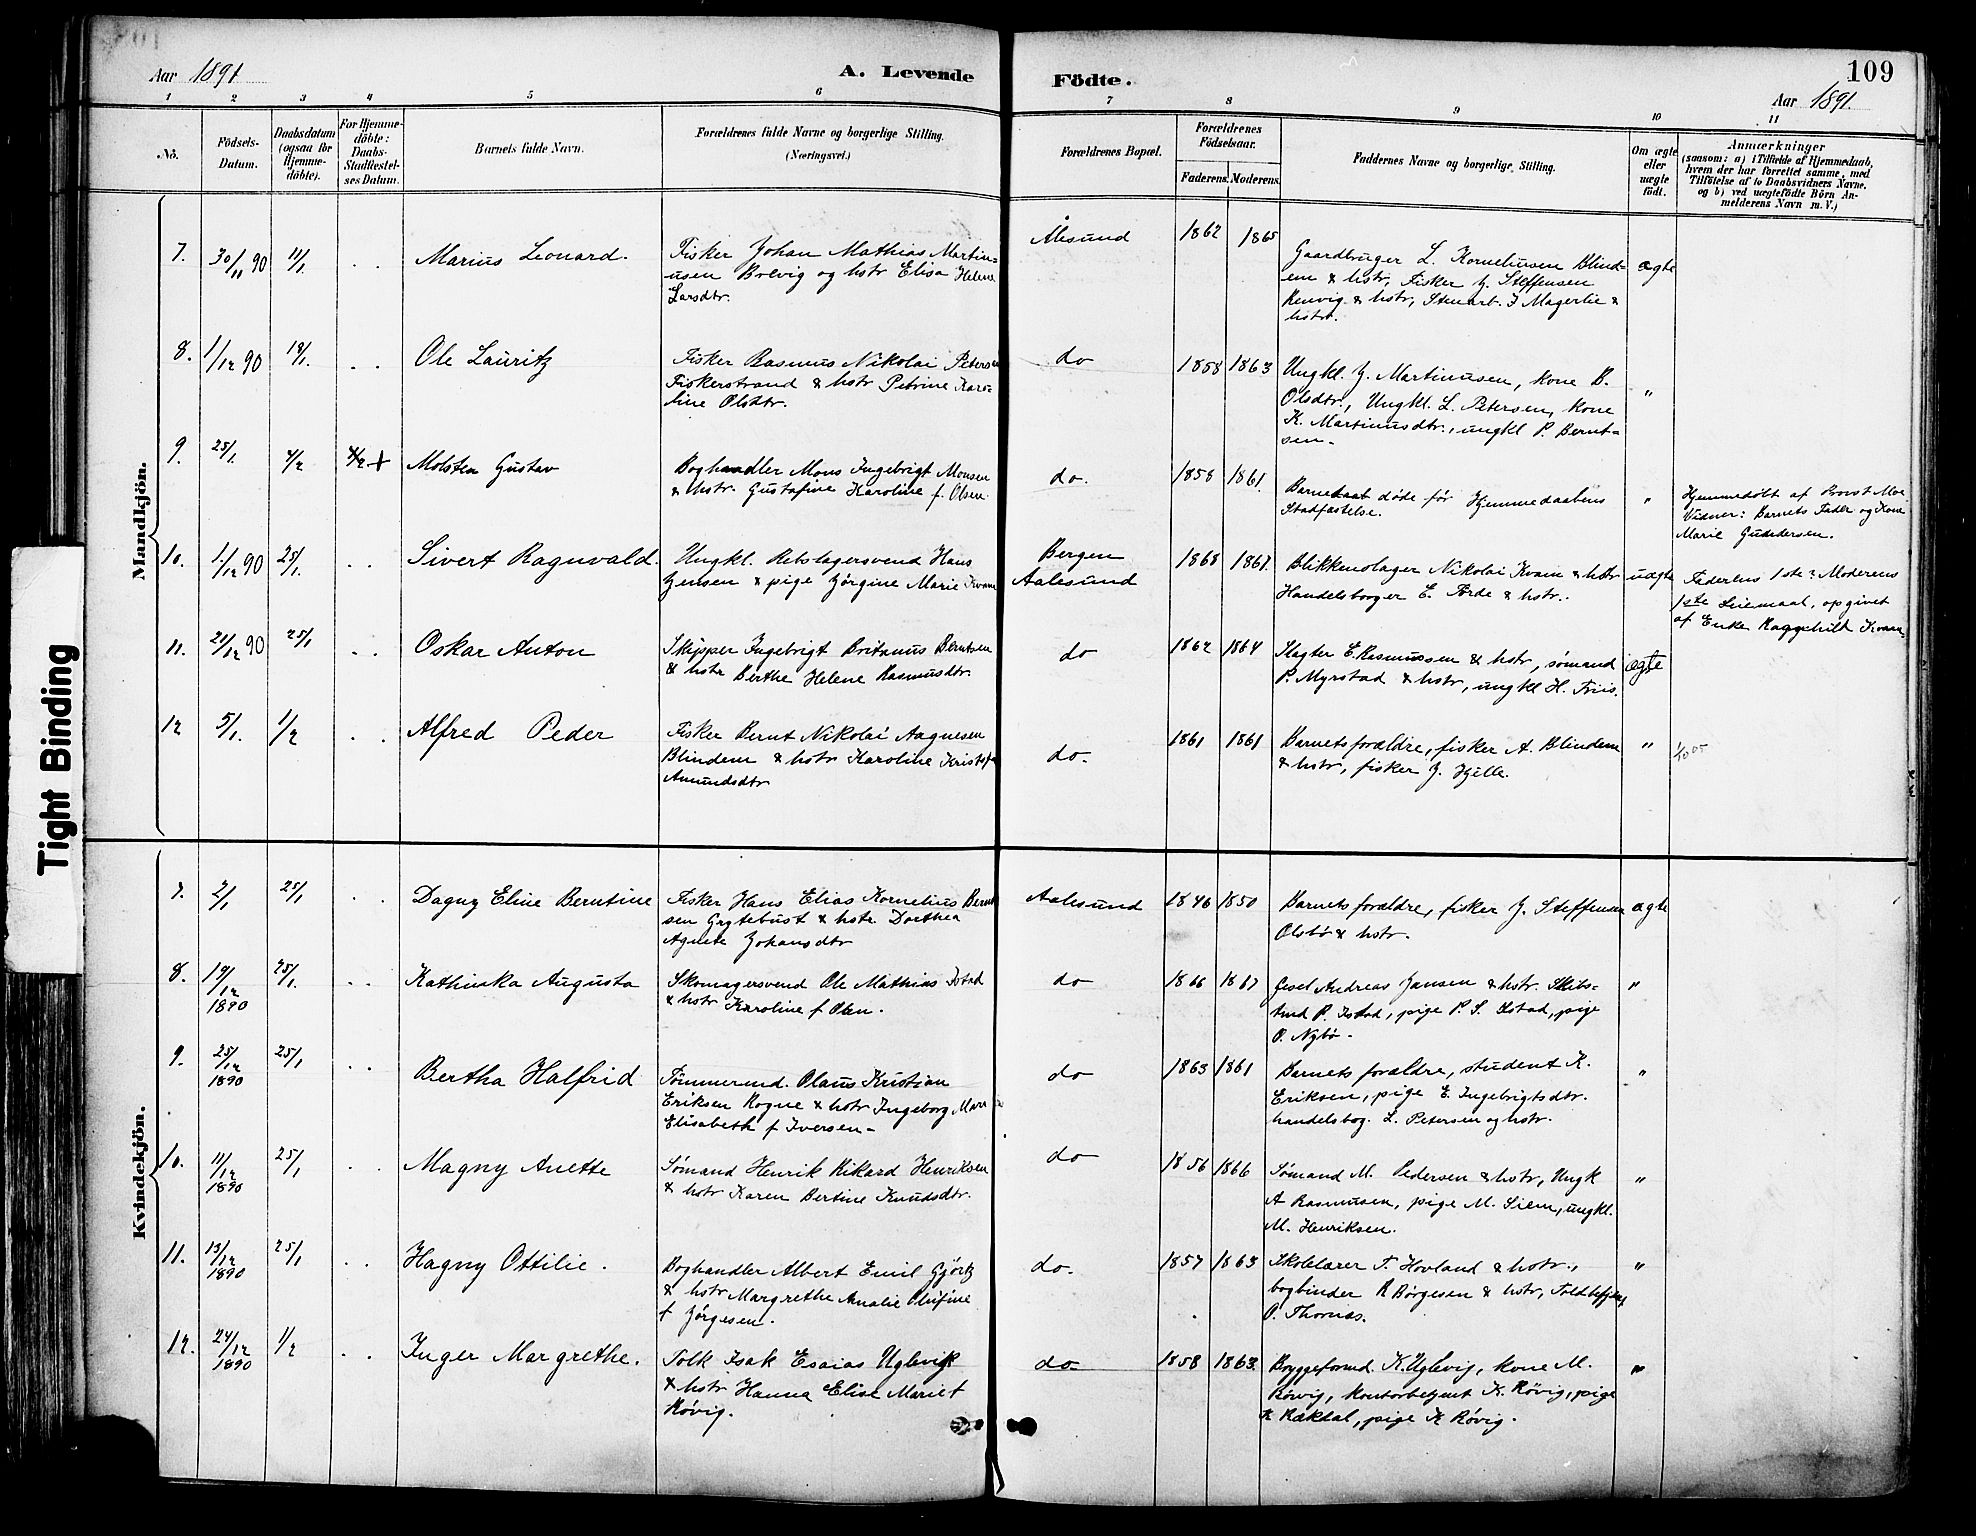 109
Aar 1891
A. Levende
Födte.
Aar 1891.
1 2 3 4 5 6 7 8 9 10 11
No.
Födsels-
Datum.
Daabsdatum
(ogsaa for
Hjemme-
döbte).
For Hjemme-
döbte:
Daabs-
Stadfæstel-
ses Datum.
Barnets fulde Navn.
Forældrenes fulde Navne og borgerlige Stilling.
(Næringsvei.)
Forældrenes Bopæl.
Forældrenes
Födselsaar.
Faderens. Moderens.
Faddernes Navne og borgerlige, Stilling.
Om ægte
eller
uægte
födt.
Anmærkninger
(saasom: a) i Tilfælde af Hjemmedaab,
hvem der har forrettet samme, med
Tilföielse af to Daabsvidners Navne,
og b) ved uægtefödte Börn An-
melderens Navn m. V.)
Mandkjön.
7. 30/11 90 11/1 . . Marius Leonard.
Fisker Johan Mathias Martin-
usen Brevig og hstr Elisa Helene
Larsdtr.
Ålesund 1862 1865
Gaardbruger L. Korneliusen Blind-
em & hstr, Fisker J. Steffensen
& hstr, Stenarb. J Magerlie &
hstr.
ægte
8. 1/12 90 18/1. . . Ole Lauritz
Fisker Rasmus Nikolai Petersen
Fiskerstrand & hstr Petrine Karo-
line Olsdtr.
do 1858 1863
Ungkl. J. Martinusen, kone B.
Olsdtr., Ungkl. L. Petersen, kone
K. Martinusdtr., ungkl P. Bernt-
sen.
"
9. 25/1. 4/2 4/2 + Molsten Gustav
Boghandler Mons Ingebrigt Monsen
& hstr. Gustafine Karoline f. Olsen.
do. 1858 1861.
Barnet døde før Hjemmedaabens
Stadfæstelse.
"
Hjemmedøbt af Provst Moe
Vidner: Barnets Fader og Kone
Marie Gundersen.
10. 1/12 90 25/1. . . Sivert Ragnvald.
Ungkl. Rebslagersvend Hans
Jensen & pige Jørgine Marie Kvam
Bergen
Aalesund
1868 1867.
Blikkenslager Nikolai Kvam & hstr
Handelsborger E. Förde & hstr.
uægte
Faderens 1ste & Moderens
1ste Leiermaal, opgivet
af Enke Raggehilt Kvam
11. 21/12 90 25/1 . . Oskar Anton
Skipper Ingebrigt Britanus Berntsen
& hstr Berthe Helene Rasmusdtr.
do 1862 1864
Slagter E. Rasmussen & hstr, sømand
P. Myrstad & hstr, ungkl H. Friis.
ægte
12 5/1. 1/2 . . Alfred Peder
Fisker Bernt Nikolai Aagnesen
Blindem & hstr Karoline
Amundsdtr
do. 1861 1861
Barnets forældre, fisker A. Blindem
& hstr, fisker J. Hjelle.
"
Kvindekjön.
7. 2/1 25/1 . . Dagny Eline Berntine
Fisker Hans Elias Kornelius Bernt
sen Grytebust & hstr Dorthea
Agnete Johansdtr
Aalesund 1846 1850
Barnets forældre, fisker J. Steffensen
Olsbø & hstr.
ægte
8. 19/12 1890 25/1. . . Kathinka Augusta
Skomagersvend Ole Mathias Istad
& hstr Karoline f Olsen.
do 1866 1867
Gesel Andreas Jansen & hstr. Skibs-
tmd P. Istad, pige P. S. Istad, pige
O. Nybø.
"
9. 25/12 1890 25/1 . . Bertha Halfrid
Tömmermd. Olaus Kristian
Eriksen Rogne & hstr Ingeborg Marie
Elisabeth f Iversen
do 1863 1861
Barnets forældre, student K.
Eriksen, pige E. Ingebrigtsdtr.
handelsbog. L. Petersen og hstr.
"
10. 11/12 1890 25/1 . . Magny Anette
Sømand Henrik Rikard Henriksen
& hstr Karen Bertine Knudsdtr.
do 1856 1866
Sømand M. Pedersen & hstr, Ungk
A Rasmussen, pige M. Siem, ungkl.
M. Henriksen.
"
11. 13/12 1890 25/1 . . Hagny Ottilie.
Boghandler Albert Emil Gjörtz
& hstr Margrethe Amalie Olufine
f Jörgesen.
do. 1857 1863
Skolelærer T. Hovland & hstr.,
bogbinder R Børgesen & hstr, Toldbetjent
O. Thomas.
"
12. 24/12 1890 1/2 . . Inger Margrethe.
Tolk Isak Esaias Uglevik
& hstr Hanna Elise Marie f
Røvig.
do 1858 1863.
Bryggeformd. K. Uglevig, kone M.
Røvig, kontorbetjent K. Røvig, pige
R Rækdal, pige K Røvig.
"
Tight Binding